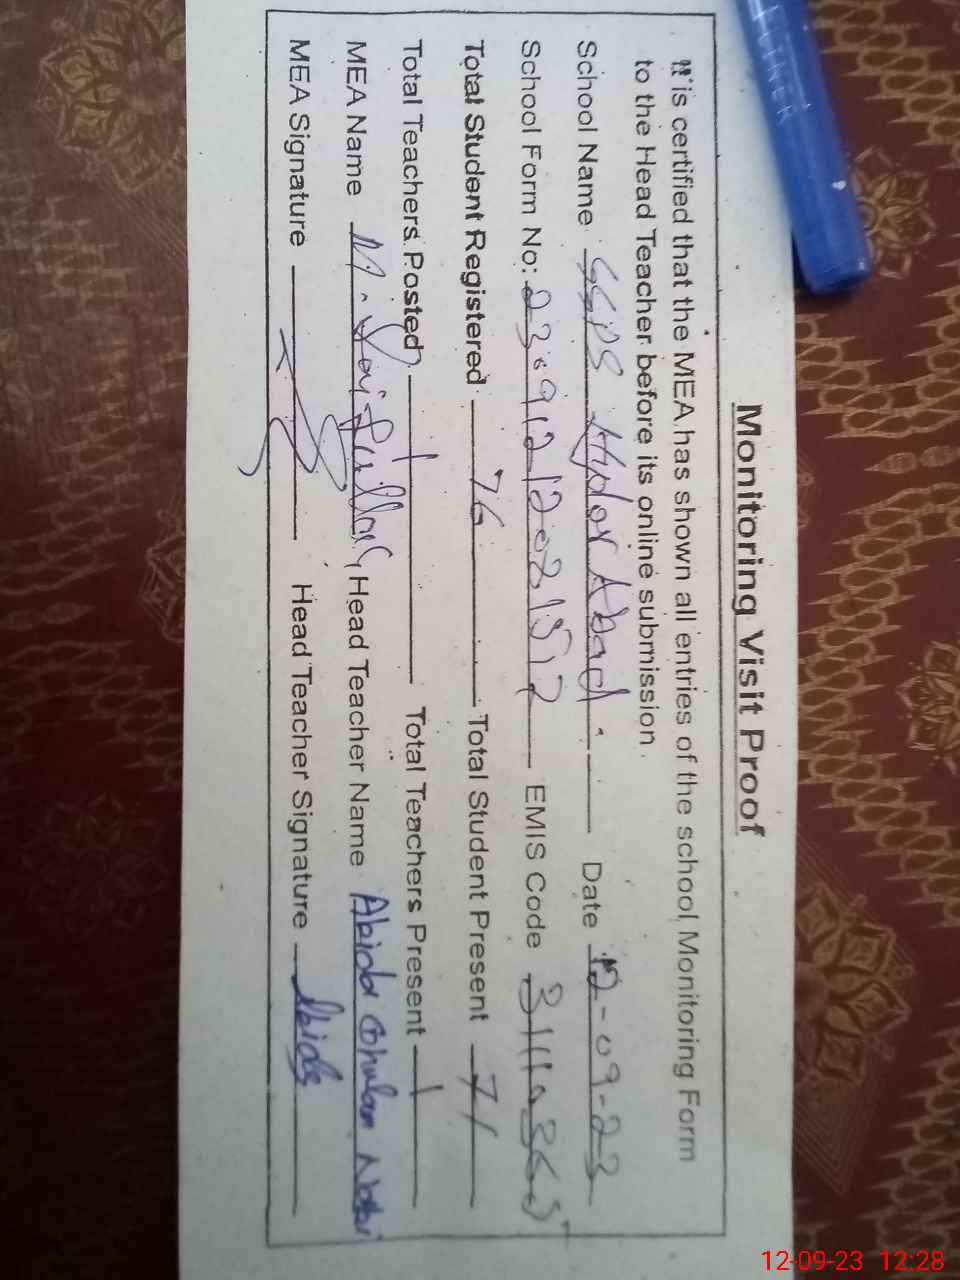 Monitoring Visit Proof
It is certified that the MEA has shown all entries of the school Monitoring Form
to the Head Teacher before its online submission
School Name Hyder Abad Date 12-09-23
School Form No: EMIS Code
Total Student Registered 76 Total Student Present 71
Total Teachers Posted 1 Total Teachers Present 1
MEA Name M. Head Teacher Name Abida Ghulam Nabi
MEA Signature Head Teacher Signature Abida
12-09-23 12:28